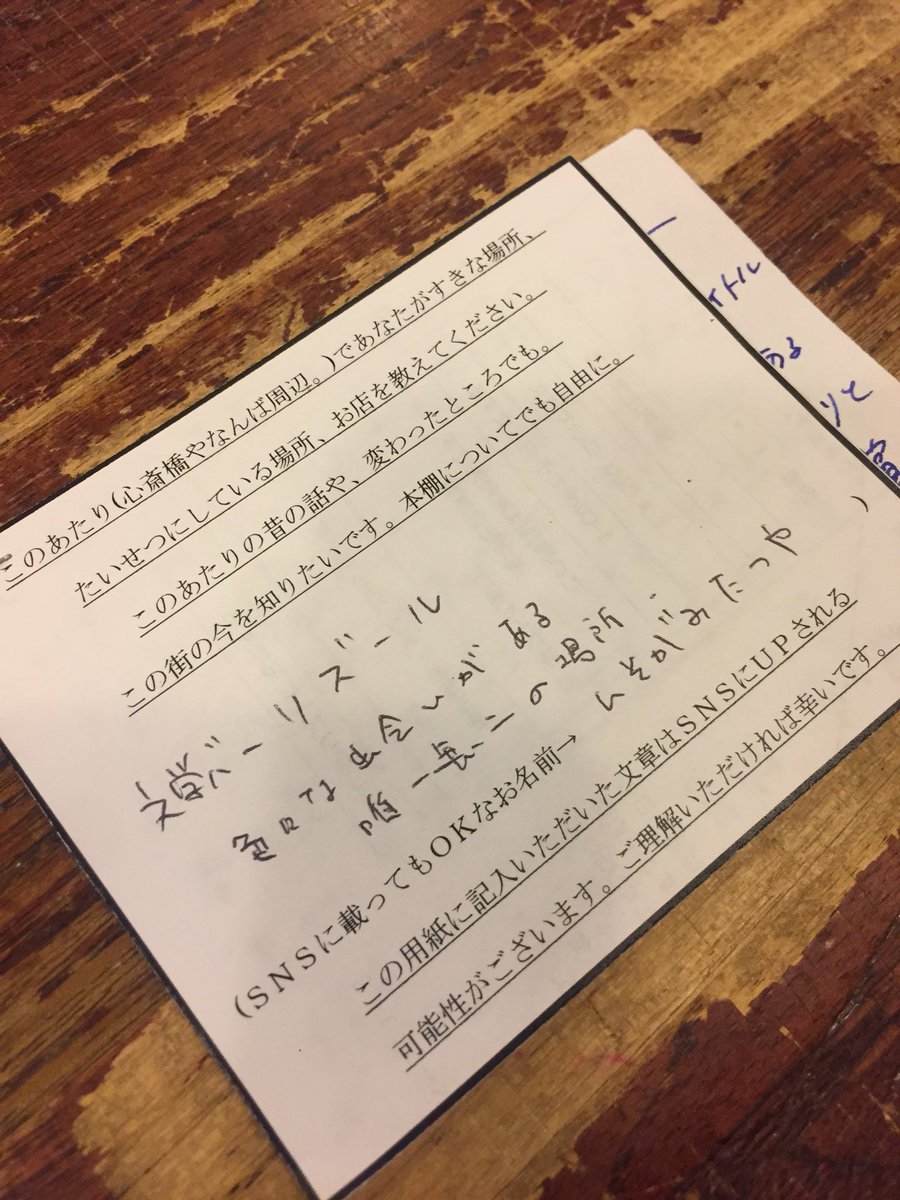 このあたり(心斎橋やなんば周辺。)であなたがすきな場所、
たいせつにしている場所、お店を教えてください。
このあたりの昔の話や、変わったところでも。
この街の今を知りたいです。本棚についてでも自由に。
文学バーリズール
色々な出会いがある
唯一無二の場所.
(SNSに載ってもOKなお名前→ いそがみたつや )
この用紙に記入いただいた文章はSNSにUPされる
可能性がございます。ご理解いただければ幸いです。
イトル
ある
りと